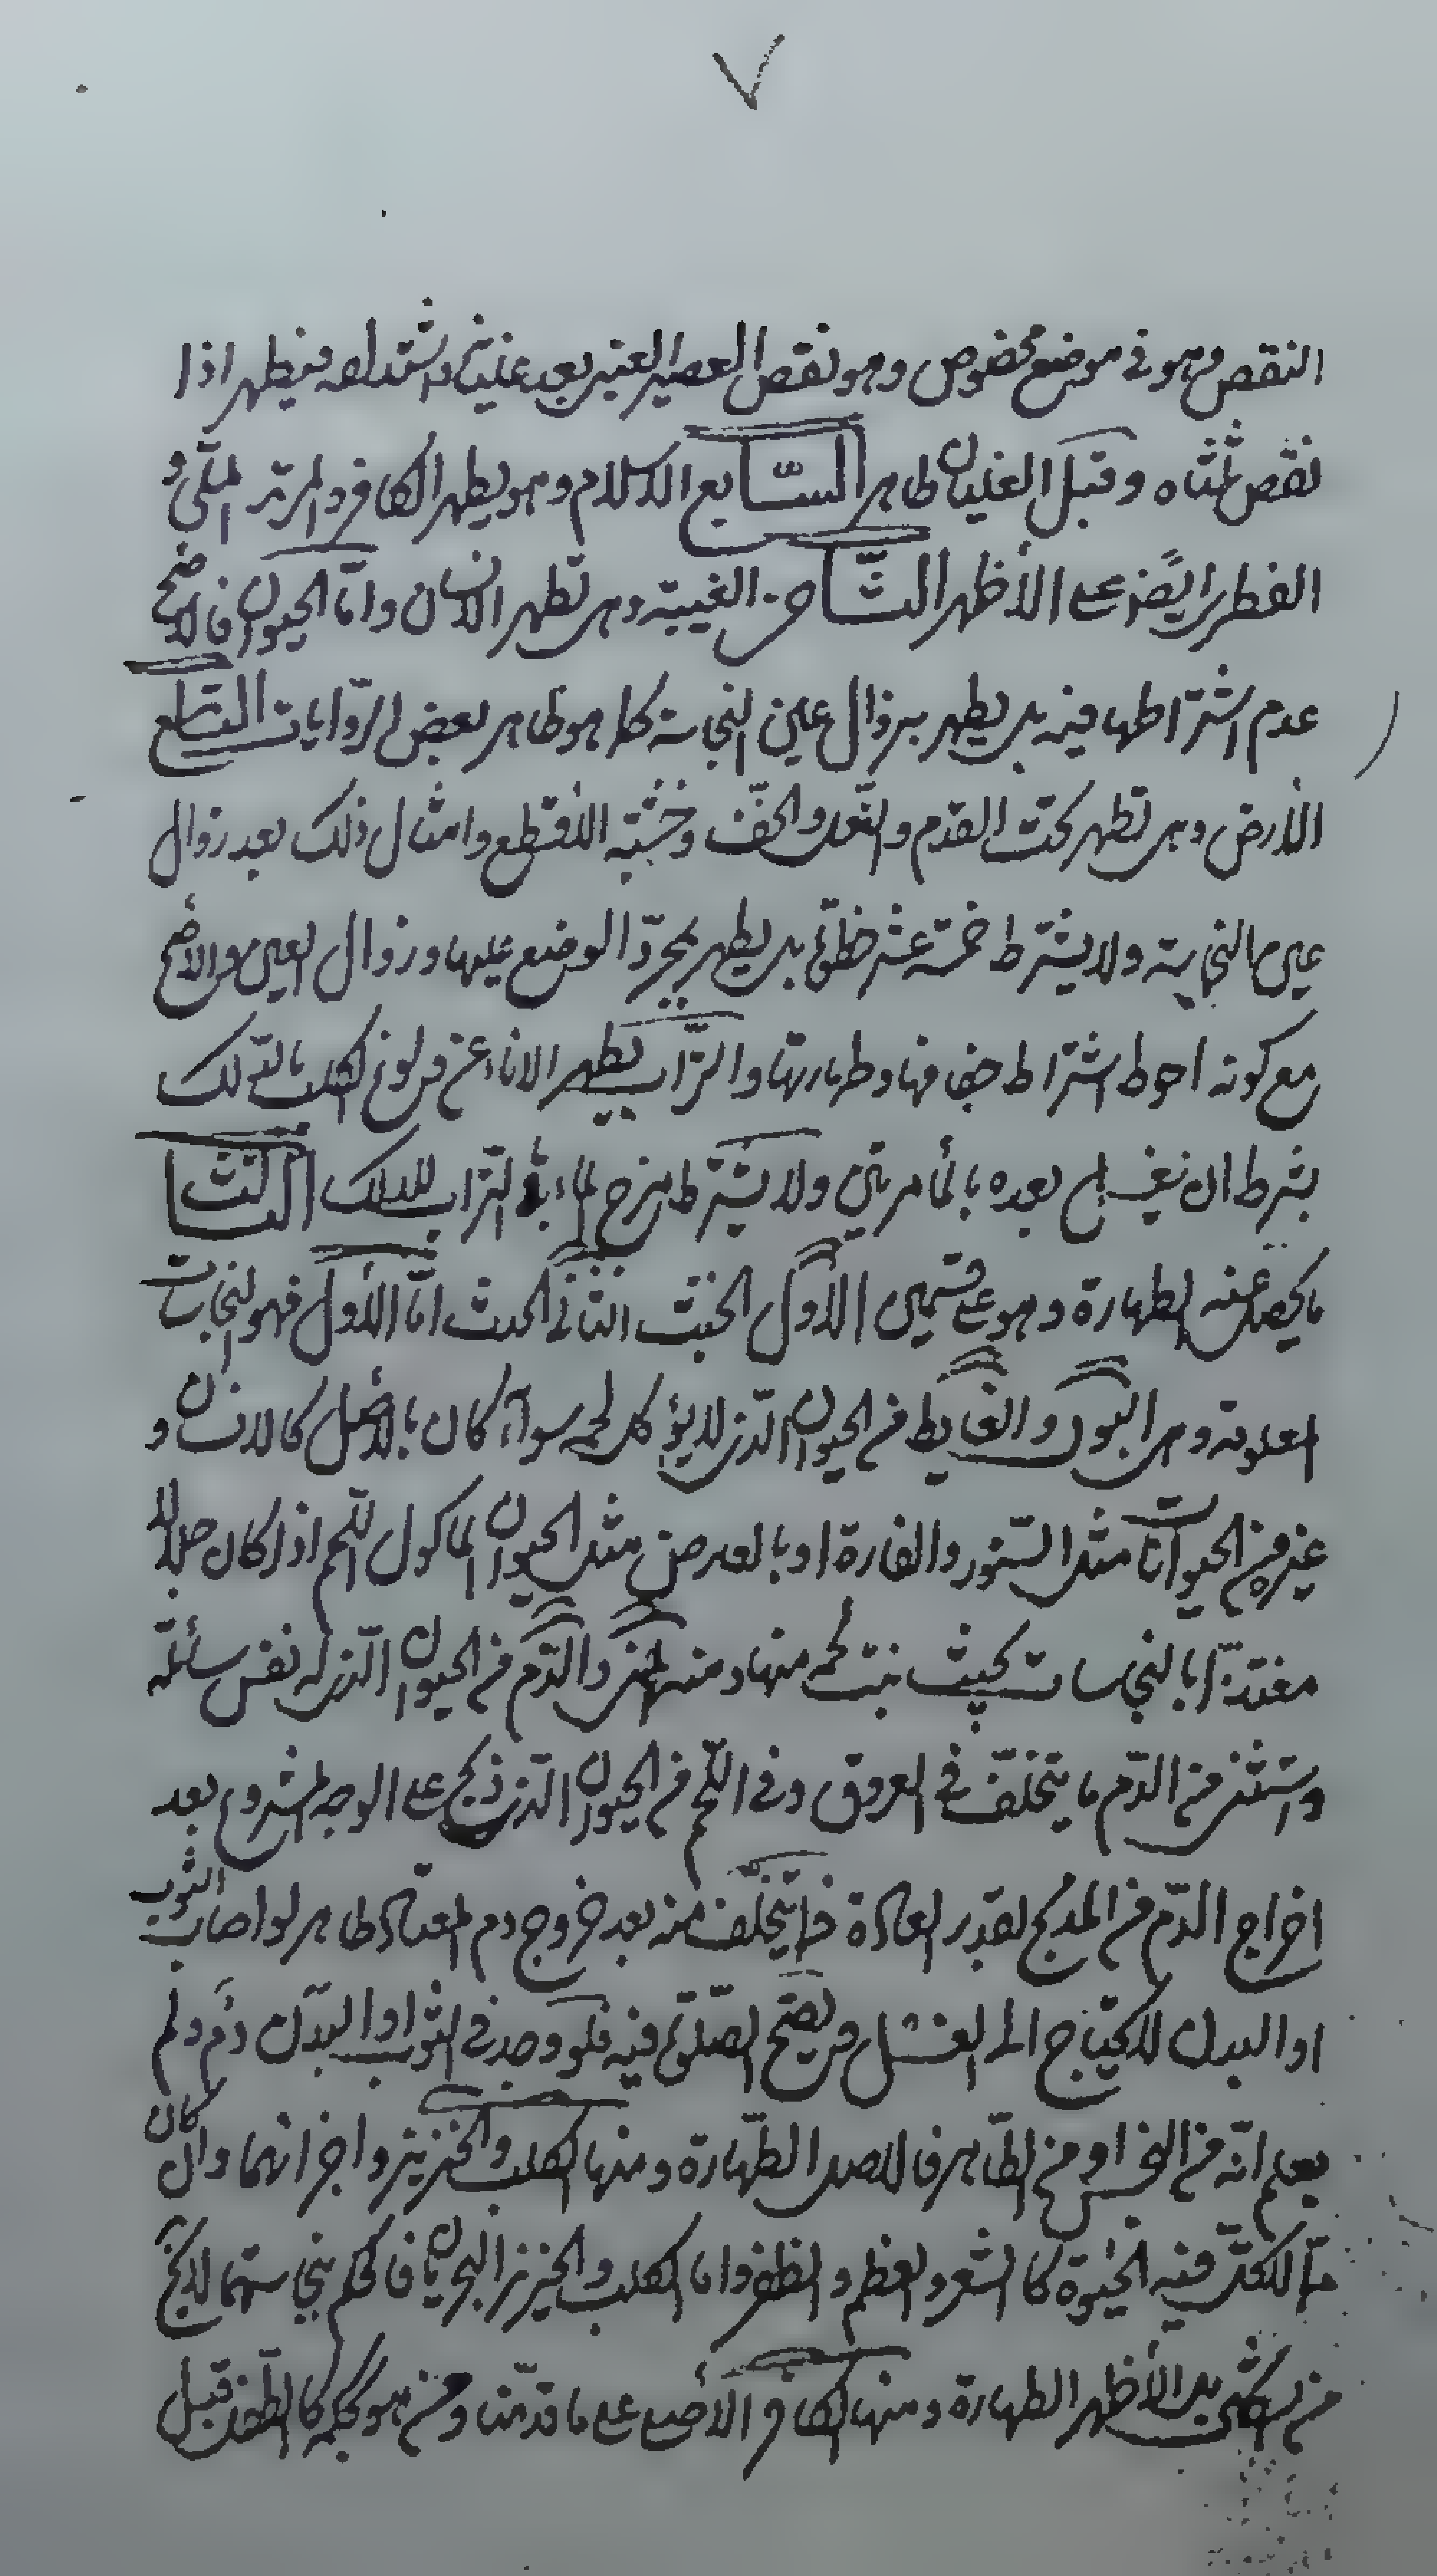 ٧
النقص وهو في موضع مخصوص وهو نقص العصير العنبي بعد غليانه واشتداده فيطهر اذا
نقص ثلثاه وقبل الغليان طاهر السّابع الاسلام وهو يطهر الكافر والمرتد الملّى و
الفطرى ايضا على الأظهر الثّامن الغيبة وهى تطهر الانسان وامّا الحيوان فالاصح
عدم اشتراطها فيه بل يطهر بزوال عين النجاسة كما هو ظاهر بعض الرّوايات التّاسع
الأرض وهى تطهر تحت القدم والنّعل والخفّ وخشبة الاقطع وامثال ذلك بعد زوال
عين النجاسة ولا يشترط خمسة عشر خطوة بل يطهر بمجرّد الوضع عليها وزوال العين هو الاصح
مع كونه احوط اشتراط جفافها وطهارتها والتّراب يطهر الاناء من ولوغ الكلب بالدلك
بشرط ان يغسل بعده بالماء مرتين ولا يشترط مزج الماء بالتراب للدلك الثّالث
ما يحصل عنه الطهارة وهو على قسمين الأوّل الخبث الثّانى الحدث امّا الأوّل فهو النجاسات
المعلومة وهى البول والغايط من الحيوان الّذى لا يؤكل لحمه سوآء كان بالأصل كالانسان و
غيره من الحيوانات مثل السّنور والفارة او بالعرض مثل الحيوان المأكول اللّحم اذا كان جلالا
مغتذيا بالنجاسات بحيث ينبت لحمه منها ومنها المنى والدّم من الحيوان الّذى له نفس سائلة
واستثنى من الدّم ما يتخلّف في العروق وفى اللّحم من الحيوان الّذى ذبح على الوجه المشروع بعد
اخراج الدّم من المذبح بقدر العادة فما يتخلّف منه بعد خروج دم المعتاد طاهر لو اصاب الثوب
او البدن لا يحتاج الى الغسل و يصحّ الصّلوة فيه فلو وجد في الثوب او البدن دم ولم
يعلم انّه من النجس او من الطّاهر فالاصل الطّهارة ومنها الكلب والخنزير واجزائهما وان كان
ممّا لا تحلّ فيه الحيوة كالشعر والعظم والظفر وامّا الكلب والخنزير البحريان فالحكم بنجاستهما لا يخ
من اشكال بل الأظهر الطهارة ومنها الكافر الأصلى على ما قدّمنا ومن هو بحكمه كالطفل قبل